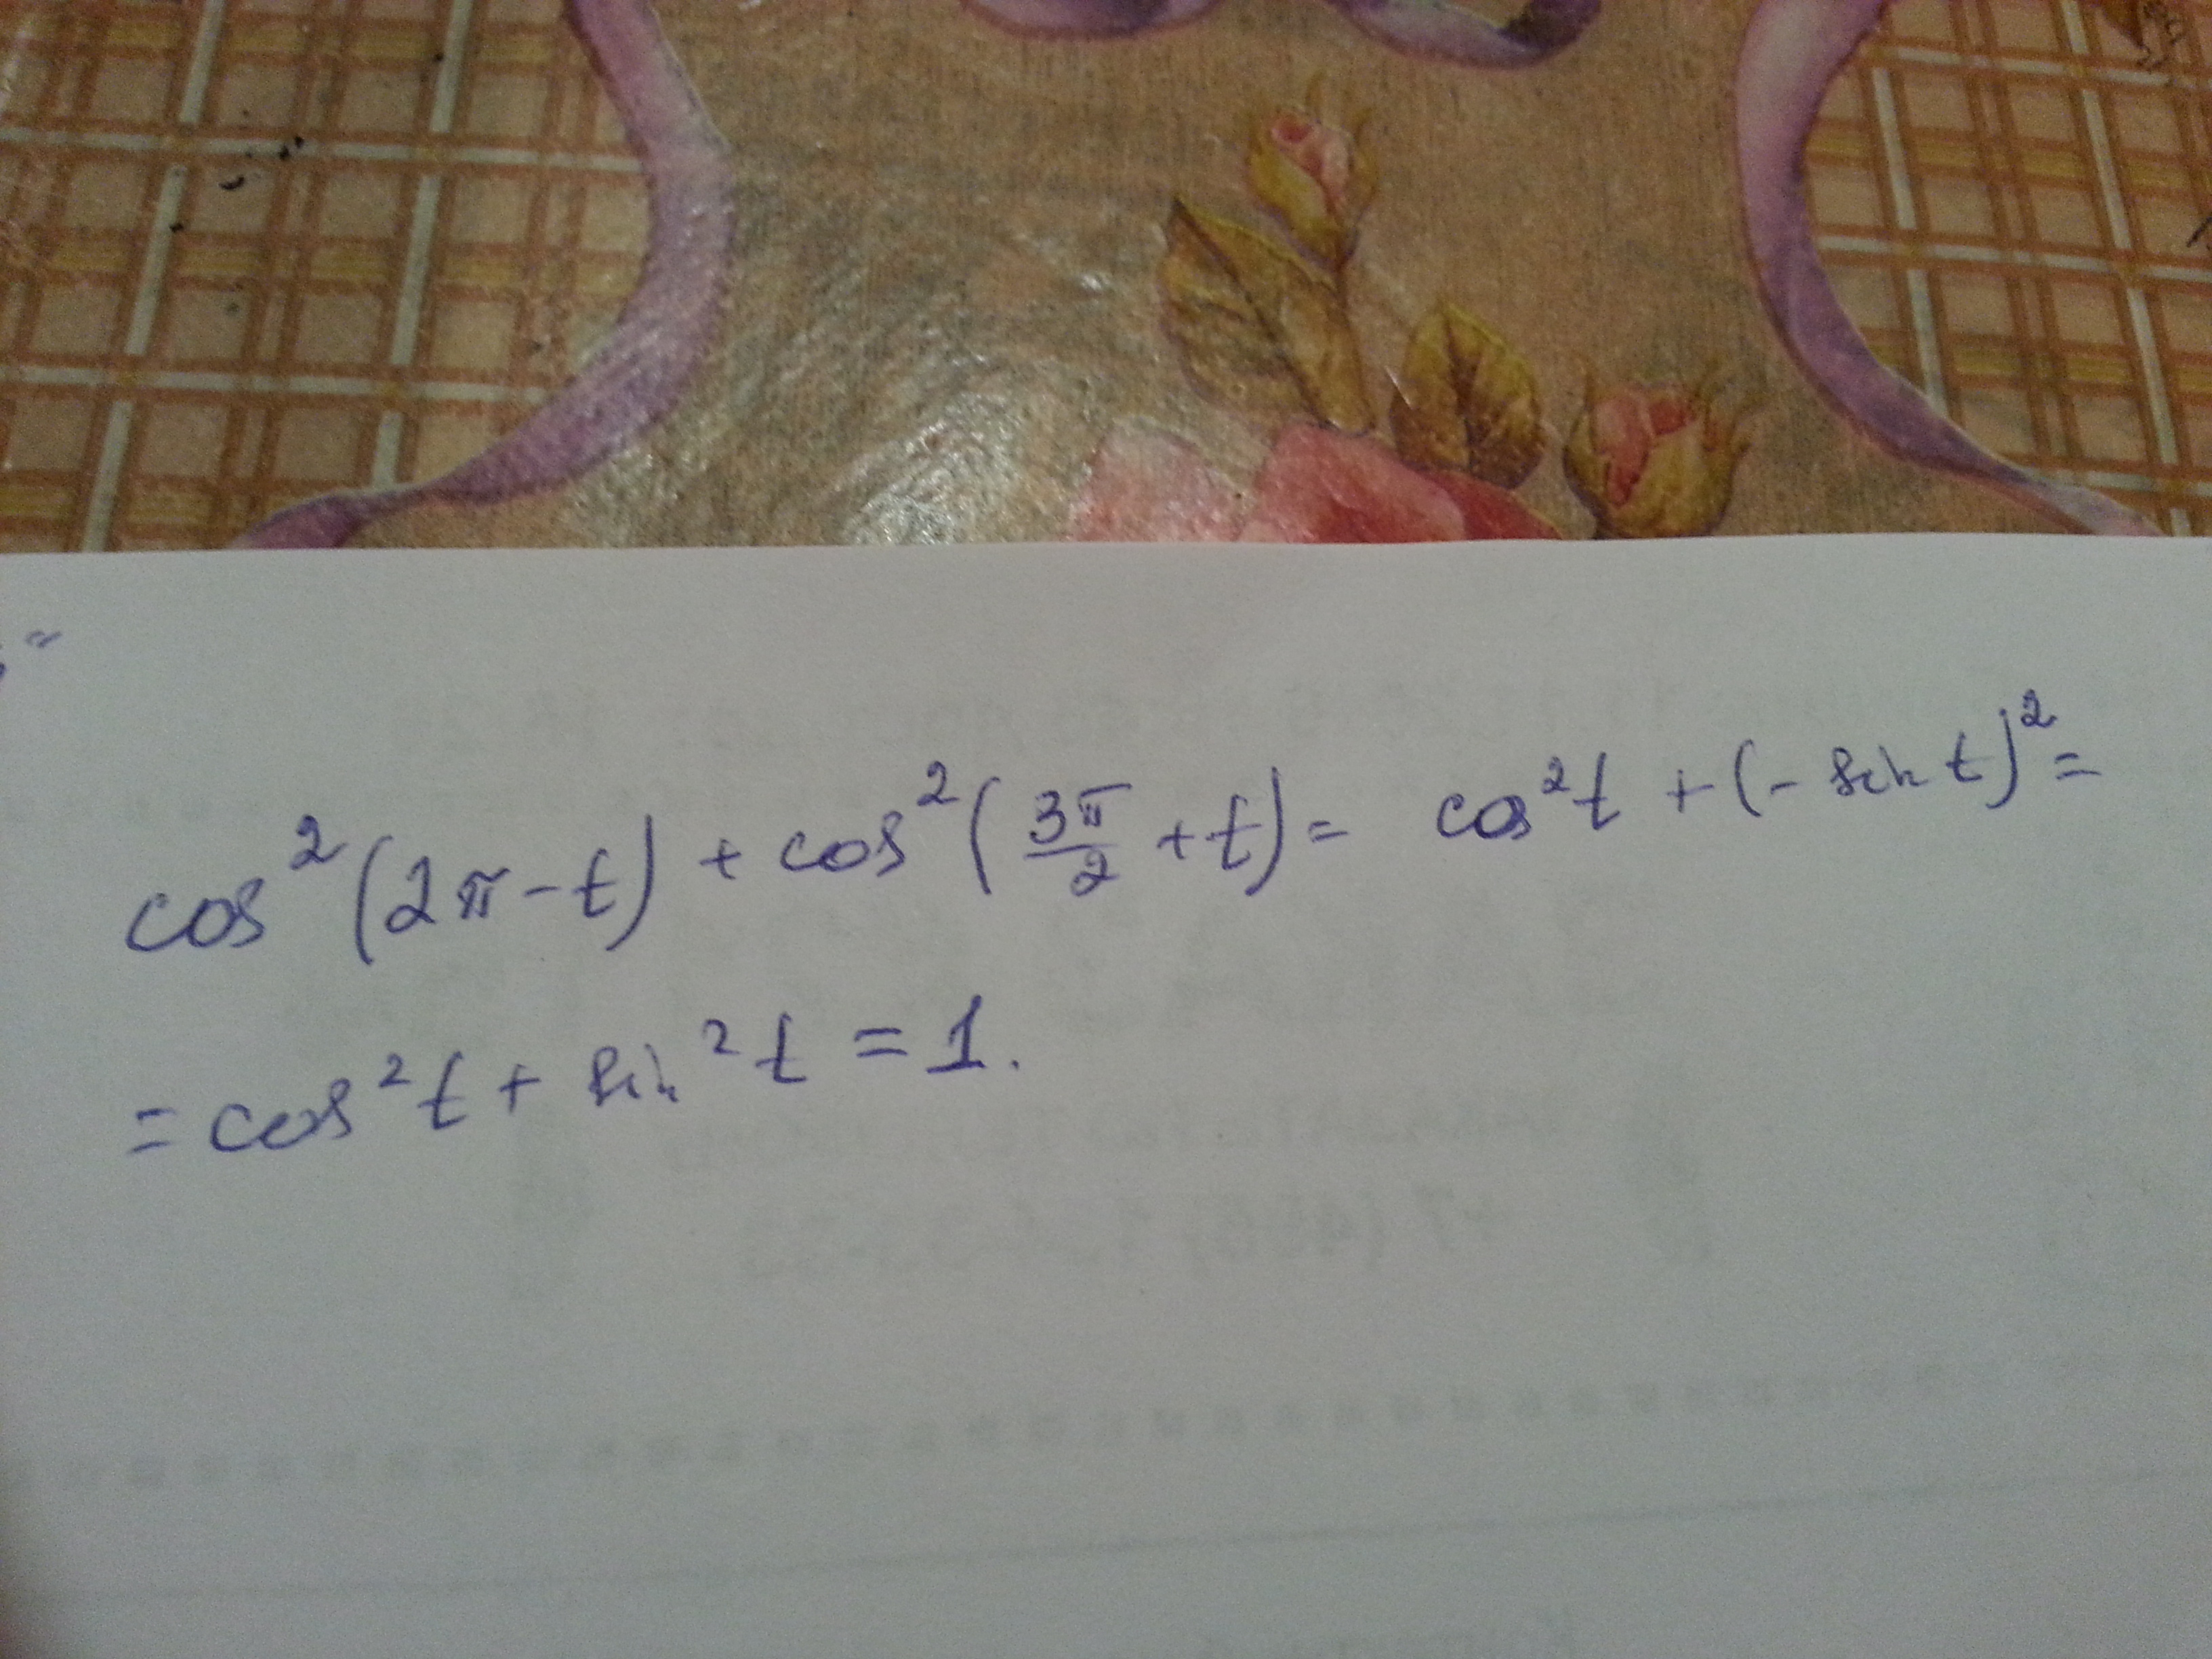 cos²(2π-t) + cos²(3π/2 + t) = cos²t + (- sin t)² =
= cos²t + sin²t = 1.